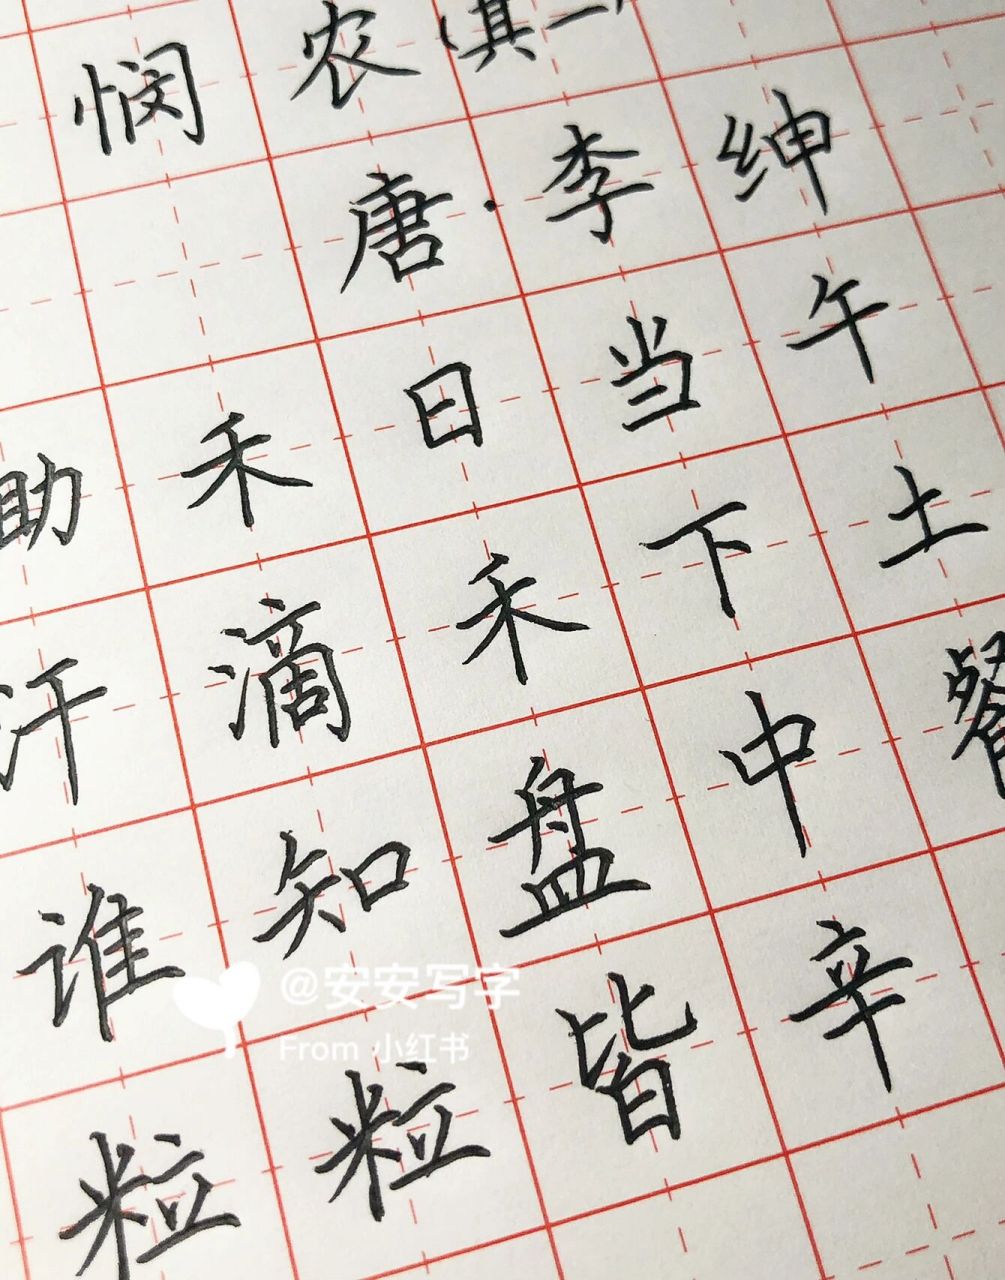 悯农(其一)
唐·李绅
助禾日当午
汗滴禾下土
谁知盘中餐
粒粒皆辛
@安安写字
From 小红书